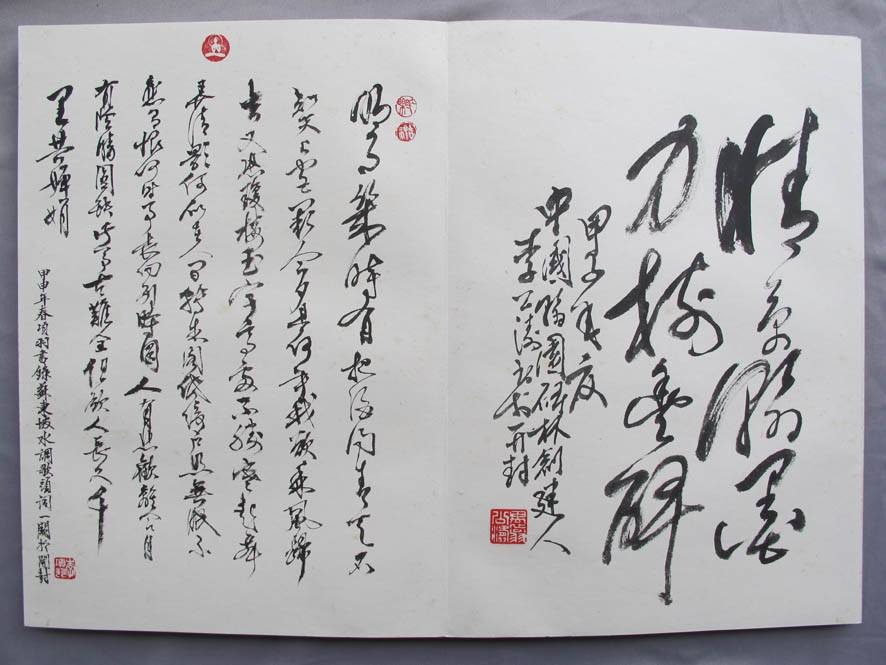 翰墨
樹豐碑
中國翰園碑林創建人
李公濤
開封
明月幾時有把酒問青天不
知天上宮闕今夕是何年我欲乘風歸
去又恐瓊樓玉宇高處不勝寒起舞
弄清影何似在人間轉朱閣低綺戶照無眠不
應有恨何事長向別時圓人有悲歡離合月
有陰晴圓缺此事古難全但願人長久千
里共嬋娟
甲申年春項羽書錄蘇東坡水調歌頭詞一闋於開封